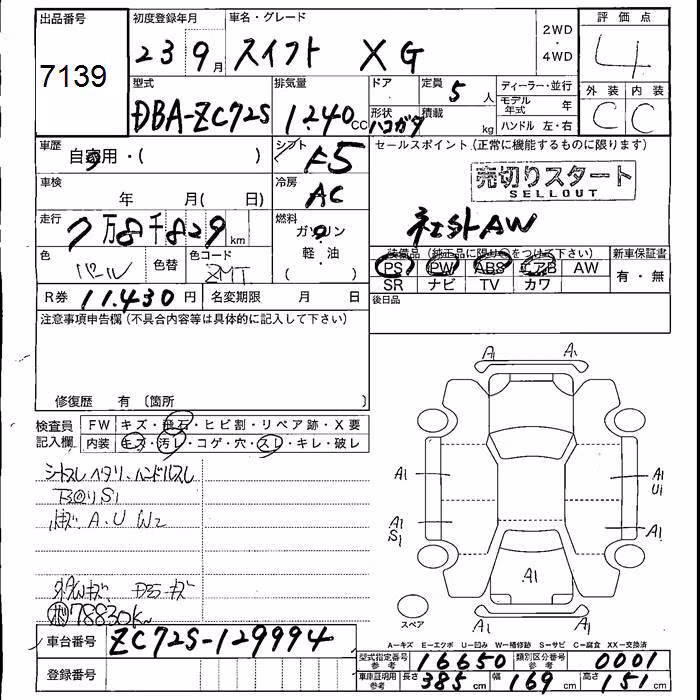 出品番号
7139
初度登録年月
23 9月
車名・グレード
スイフト XG
2WD
・
4WD
評価点
4
外装 内装
C C
型式
DBA-ZC72S
排気量
1240 CC
ドア
・
形状
ハコガタ
定員
5人
積載
kg
ディーラー・並行
モデル年式 年
ハンドル 左・右
車歴
自家用・( )
シフト
F5
セールスポイント(正常に機能するものに限ります)
売切りスタート
SELLOUT
社外AW
車検
年 月( 日)
冷房
AC
走行
7万8千829km
燃料
ガソリン
軽・油
( )
色
パール
色替
色コード
ZMT
装備品(純正品に限り○をつけて下さい)
PS PW ABS エアB AW
SR ナビ TV カワ
新車保証書
有・無
R券 11.430円
名変期限 月 日
後日品
注意事項申告欄(不具合内容等は具体的に記入して下さい)
修復歴 有〔箇所 〕
検査員記入欄
FW キズ・飛石・ヒビ割・リペア跡・X要
内装 キズ・汚レ・コゲ・穴・スレ・キレ・破レ
シートスレ ヘタリ、ハンドルスレ
下回りS1
A.U W2
78830K
A1 A1
A1 A1
U1
A1 A1
S1
A1
スペア
車台番号 ZC72S-129994
登録番号
A=キズ E=エクボ U=凹み W=補修跡 S=サビ C=腐食 XX=交換済
型式指定番号参考 16650
類別区分番号参考 0001
車庫証明用参考 長さ 385cm 幅 169cm 高さ 151cm